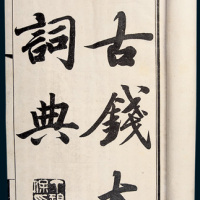 古錢大
詞典